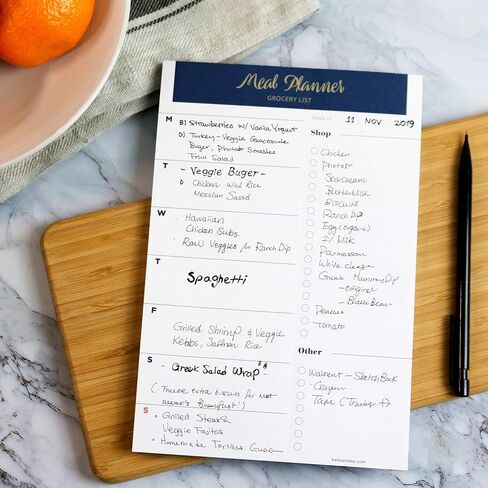 Meal Planner
GROCERY LIST
week of 11 NOV 2019
M B) Strawberries w/ Vanila Yogurt
D) Turkey - Veggie Guacamole
Buger, Photato Smashes
Fruit Salad
T - Veggie Buger -
Chicken Wild Rice
Mesclun Salad
W Hawaiian
Chicken Subs
Raw Veggies w/ Ranch Dip
T Spaghetti
F Grilled Shrimp & Veggie
Kebbs, Saffron Rice
S - Greek Salad Wrap
(Freeze extra biscuis for next
week's Breakfast!)
S • Grilled Steak &
Veggie Fajitas
• Homemade Tortillas, Guac
Shop
Chicken
Photato
Sourcream
Butter Milk
Biscuits
Ranch Dip
Egg (organic)
2% Milk
Parmessan
White Cheese
Greek Hummus Dip
- original
- Black Bean
Peaches
Tomato
Other
Walmart - Sketch Book
- Crayon
Tape
helloanday.com